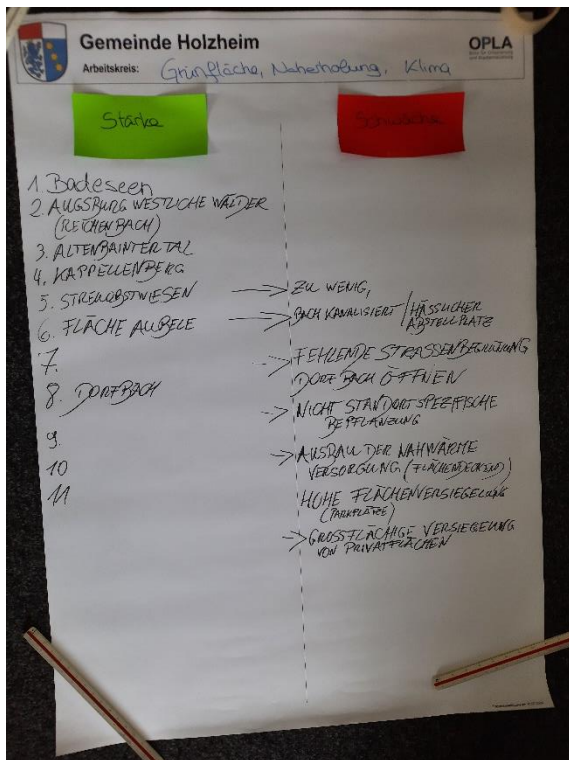 Gemeinde Holzheim
OPLA
Arbeitskreis: Grünfläche, Naherholung, Klima
Stärke
Schwäche
1. Badeseen
2. AUGSBURG WESTLICHE WÄLDER
(REICHENBACH)
3. ALTENBAINTERTAL
4. KAPPELLENBERG
5. STREUOBSTWIESEN → ZU WENIG,
6. FLÄCHE AUBELE → BACH KANALISIERT / HÄSSLICHER
ABSTELLPLATZ
7. → FEHLENDE STRASSENBEGRÜNUNG
8. DORFBACH DORFBACH ÖFFNEN
→ NICHT STANDORTSPEZIFISCHE
BEPFLANZUNG
9. → AUSBAU DER NAHWÄRME
VERSORGUNG (FLÄCHENDECKEND)
10
11 HOHE FLÄCHENVERSIEGELUNG
(PARKPLÄTZE)
→ GROSSFLÄCHIGE VERSIEGELUNG
VON PRIVATFLÄCHEN